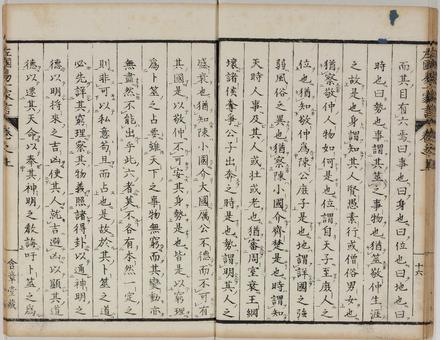 而其目有六焉曰事也曰身也曰位也曰地也曰
時也曰勢也事謂其筮之事物也猶筮敬仲生涯
之故是也身謂知其人賢愚素行或僧俗男女也
猶察敬仲人物如何是也位謂自天子至庶人之
位也猶知敬仲爲陳公庶子是也地謂詳國之強
弱風俗之異也猶察陳小國介齊楚是也時謂知
天時人事及其人或壯或老也猶審周室衰王綱
壞諸侯爭公子出奔之時是也勢謂明其人之
盛衰也猶知陳小國介大國厲公不德而不可有
其國是以敬仲不可安其身勢是也皆是以窮理
爲卜筮之占要雖天下之事物無窮而其變動亦
無盡然不能出乎此六者莫不各有本然一定之
則非可以私意苟且而占也是故於其卜筮之道
必先詳其窮理察其物義照諸得卦以通神明之
德以明將來之吉凶使其人就吉避凶以順其道
德以遷其天命以奉其神明之敎誨吁卜筮之爲
十六
含章堂藏